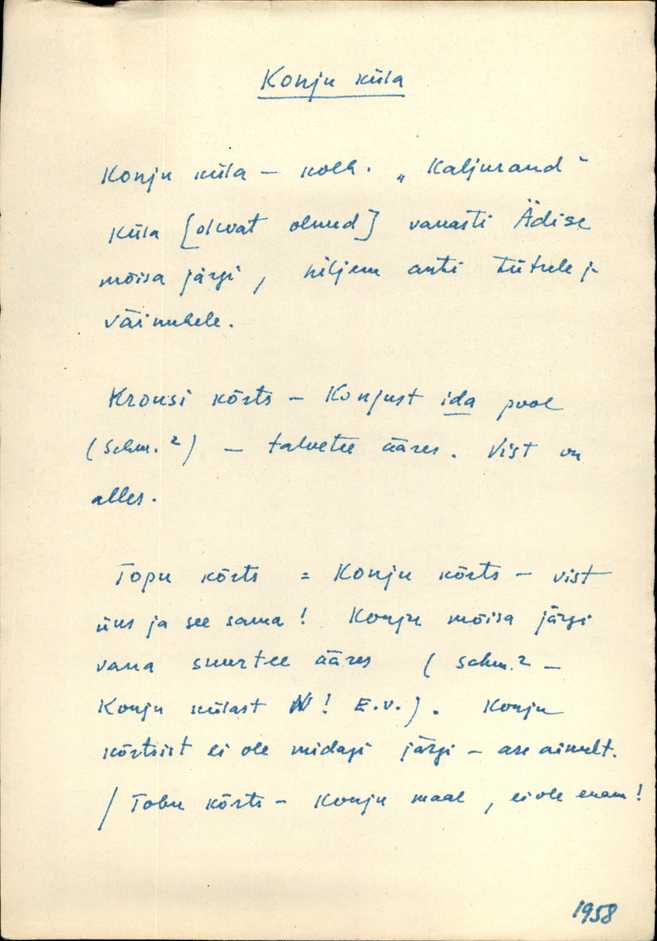 Konju küla
Konju küla – kolh. „Kaljurand"
Küla [olevat olnud] vanasti Ädise
mõisa järgi, hiljem anti
väimehele.
Krousi kõrts – Konjust ida pool
(Schm.²) – talvetee ääres. Vist on
alles.
Topu kõrts = Konju kõrts – vist
üks ja see sama! Konju mõisa järgi
vana suurtee ääres (Schm.² –
Konju külast N! E.V.). Konju
kõrtsist ei ole midagi järgi – ase ainult.
/ Tobu kõrts – Konju maal, ei ole enam!
1958